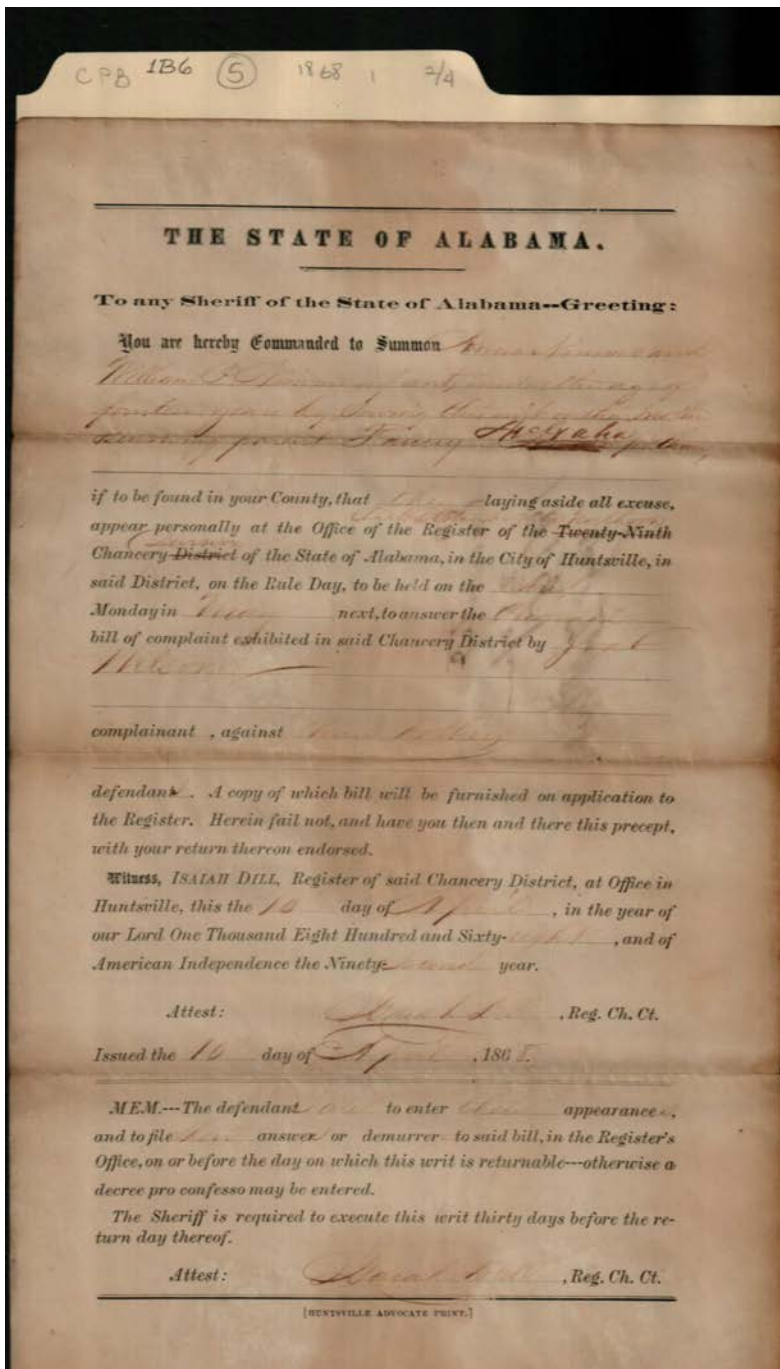 CPB 1B6 5 1868 1 2/4
THE STATE OF ALABAMA.
To any Sheriff of the State of Alabama--Greeting:
You are hereby Commanded to Summon
William
years by
Fanny
if to be found in your County, that they laying aside all excuse,
appear personally at the Office of the Register of the Twenty-Ninth
Chancery District of the State of Alabama, in the City of Huntsville, in
said District, on the Rule Day, to be held on the
Monday in May next, to answer the
bill of complaint exhibited in said Chancery District by
complainant , against
defendant . A copy of which bill will be furnished on application to
the Register. Herein fail not, and have you then and there this precept,
with your return thereon endorsed.
Witness, ISAIAH DILL, Register of said Chancery District, at Office in
Huntsville, this the 10 day of April , in the year of
our Lord One Thousand Eight Hundred and Sixty-eight , and of
American Independence the Ninety-second year.
Attest: Isaiah Dill , Reg. Ch. Ct.
Issued the 10 day of April , 1868.
MEM.---The defendant are to enter their appearance ,
and to file answer or demurrer to said bill, in the Register's
Office, on or before the day on which this writ is returnable---otherwise a
decree pro confesso may be entered.
The Sheriff is required to execute this writ thirty days before the re-
turn day thereof.
Attest: Isaiah Dill , Reg. Ch. Ct.
[HUNTSVILLE ADVOCATE PRINT.]